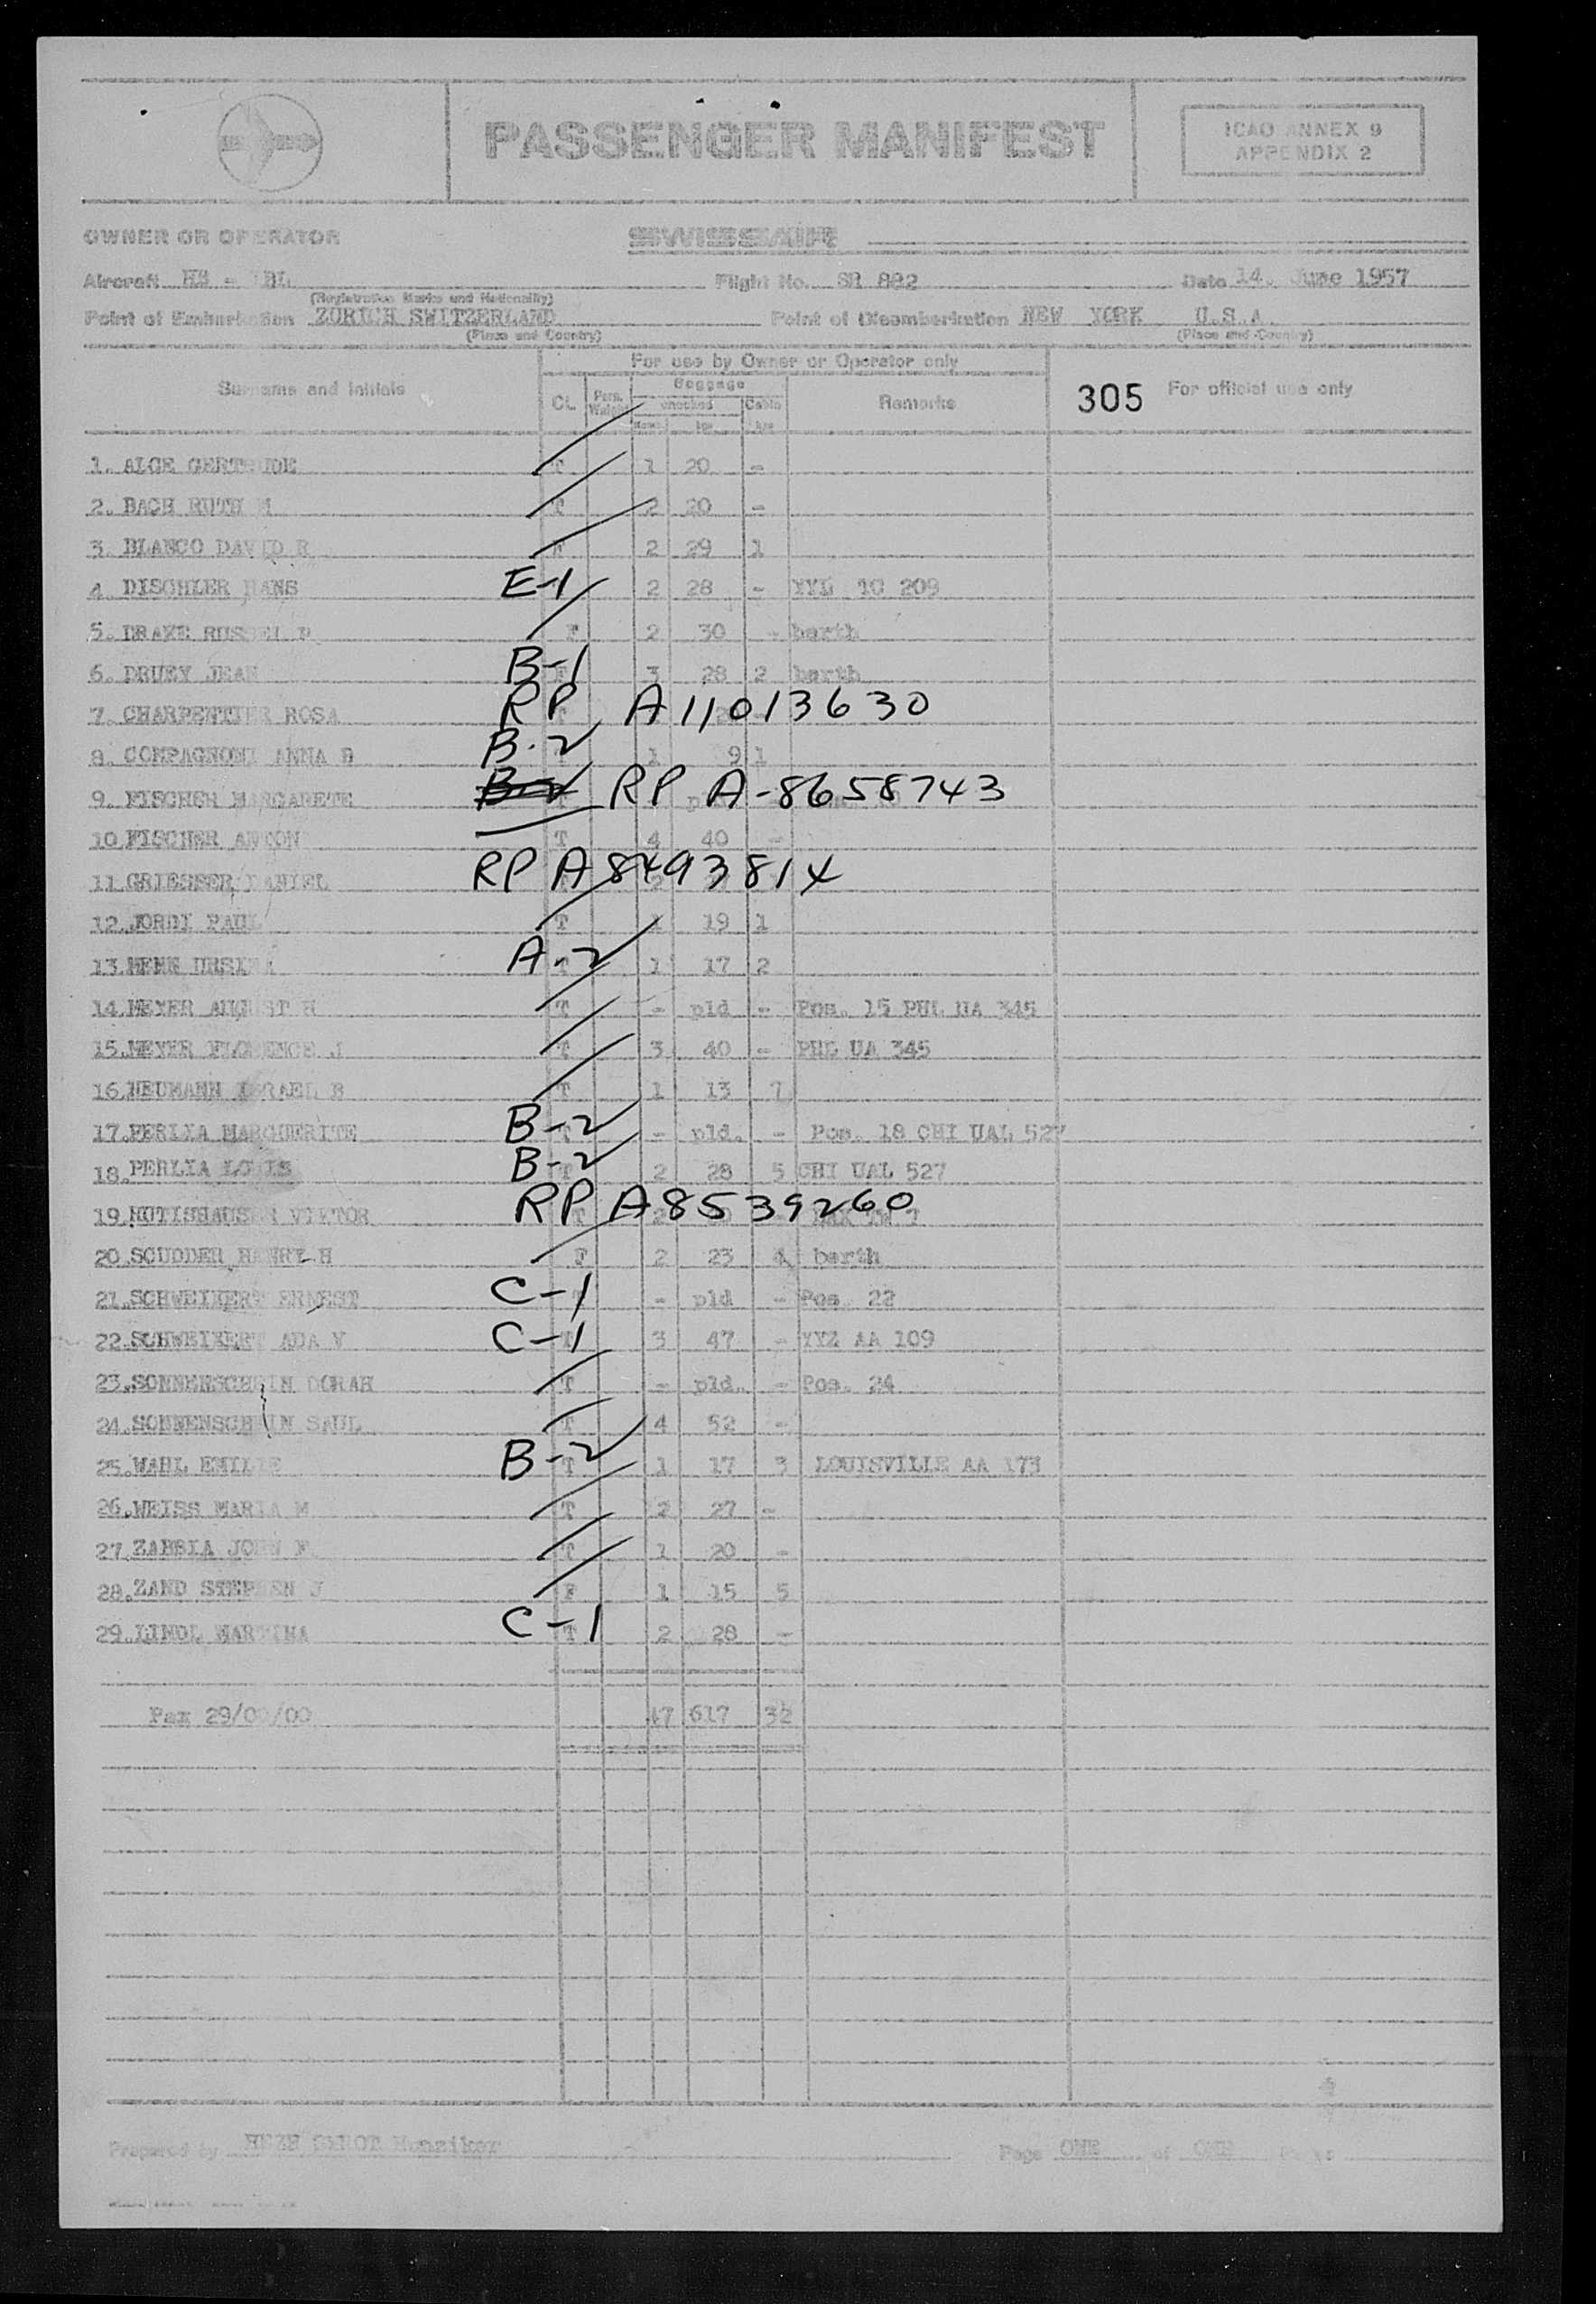 PASSENGER MANIFEST
ICAO ANNEX 9
APPENDIX 2
OWNER OR OPERATOR SWISSAIR
Aircraft HB - IBL Flight No. SR 882 Date 14. June 1957
(Registration Marks and Nationality)
Point of Embarkation ZURICH SWITZERLAND Point of Disembarkation NEW YORK U.S.A.
(Place and Country) (Place and Country)
For use by Owner or Operator only
Surname and Initials CL. Pers. Weight Baggage checked Cabin Remarks 305 For official use only
kgs kgs
1. ALGE GERTRUDE T 1 20 -
2. BACH RUTH M T 2 20 -
3. BLANCO DAVID R F 2 29 1
4. DISCHLER HANS E-1 2 28 - TC 209
5. DRAKE F 2 30 - berth
6. DRUEY JEAN B-1 3 28 2 berth
7. CHARPENTIER ROSA RP A11013630
8. COMPAGNONI ANNA B B-2 1 9 1
9. FISCHER MARGARETE B-2 RP A-8658743
10. FISCHER ANTON T 4 40 -
11. GRIESSER DANIEL RP A8493814
12. JORDI PAUL T 1 19 1
13. URSINA A-2 T 1 17 2
14. MEYER AUGUST H T - pld - Pos. 15 PHL UA 345
15. MEYER FLORENCE J T 3 40 - PHL UA 345
16. NEUMANN ISRAEL B T 1 13 7
17. PERLIA MARGUERITE B-2 T - pld. - Pos. 18 CHI UAL 527
18. PERLIA LOUIS B-2 T 2 28 5 CHI UAL 527
19. VIKTOR RP A8539260
20. SCUDDER HENRY H F 2 23 4 berth
21. SCHWEIKERT ERNEST C-1 T - pld - Pos 22
22. SCHWEIKERT ADA V C-1 T 3 47 - YYZ AA 109
23. SONNENSCHEIN DORAH T - pld. - Pos. 24
24. SONNENSCHEIN SAUL T 4 52 -
25. WAHL EMILIE B-2 T 1 17 3 LOUISVILLE AA 173
26. WEISS MARIA M T 2 27 -
27. JOHN F. T 1 20 -
28. ZAND STEPHEN J F 1 15 5
29. MARTINA C-1 T 2 28 -
Pax 29/00/00 47 617 32
Prepared by Hunziker Page ONE of ONE